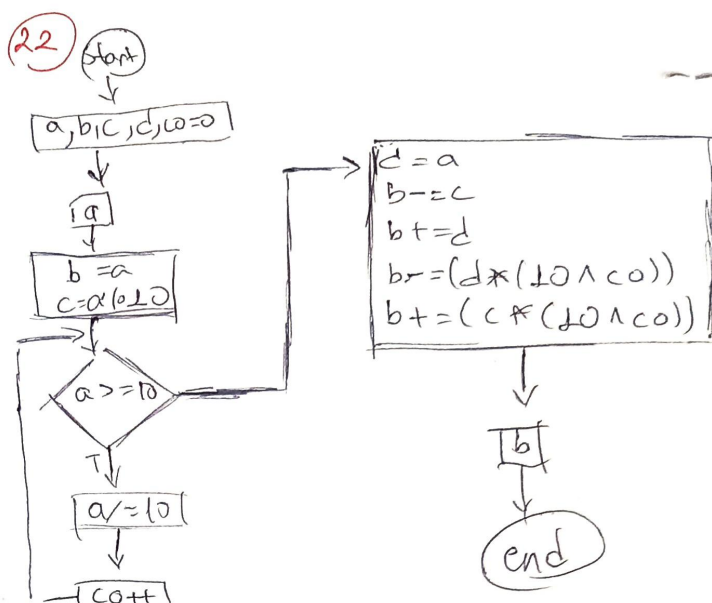 22
start
a,b,c,d,co=0
a
b=a
c=a%10
a>=10
T
a/=10
co++
d=a
b-=c
b+=d
b-=(d*(10^co))
b+=(c*(10^co))
b
end